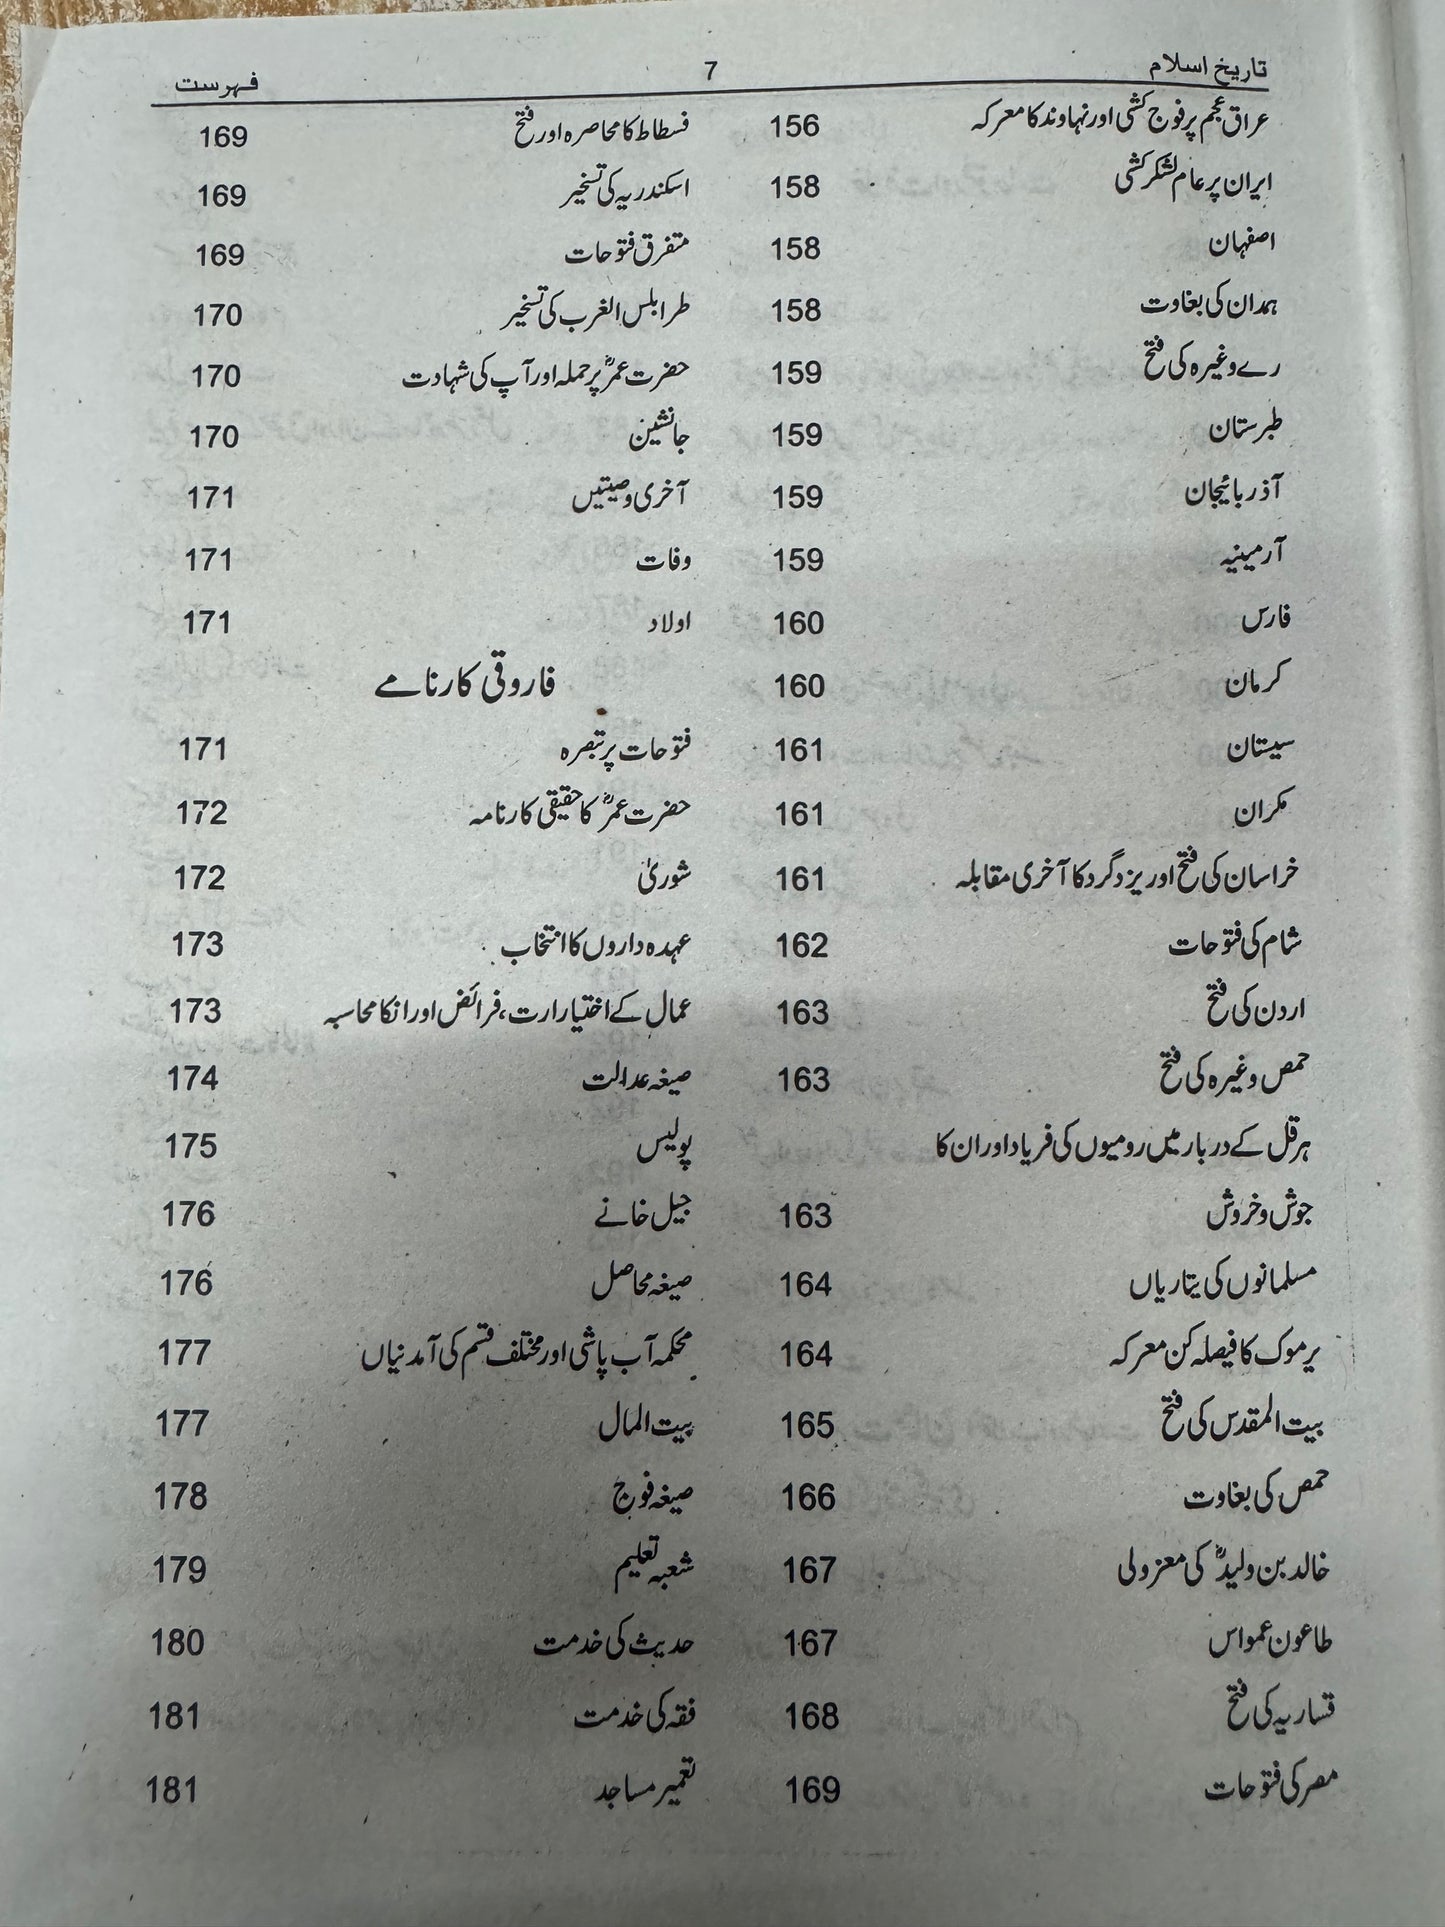 تاریخ اسلام 7 فہرست
عراق عجم پر فوج کشی اور نہاوند کا معرکہ 156
ایران پر عام لشکر کشی 158
اصفہان 158
ہمدان کی بغاوت 158
رے وغیرہ کی فتح 159
طبرستان 159
آذر بائیجان 159
آرمینیہ 159
فارس 160
کرمان 160
سیستان 161
مکران 161
خراسان کی فتح اور یزدگرد کا آخری مقابلہ 161
شام کی فتوحات 162
اردن کی فتح 163
حمص وغیرہ کی فتح 163
ہرقل کے دربار میں رومیوں کی فریاد اور ان کا
جوش و خروش 163
مسلمانوں کی یتاریاں 164
یرموک کا فیصلہ کن معرکہ 164
بیت المقدس کی فتح 165
حمص کی بغاوت 166
خالد بن ولیدؓ کی معزولی 167
طاعون عمواس 167
قساریہ کی فتح 168
مصر کی فتوحات 169
فسطاط کا محاصرہ اور فتح 169
اسکندریہ کی تسخیر 169
متفرق فتوحات 169
طرابلس الغرب کی تسخیر 170
حضرت عمرؓ پر حملہ اور آپ کی شہادت 170
جانشین 170
آخری وصیتیں 171
وفات 171
اولاد 171
فاروقی کارنامے
فتوحات پر تبصرہ 171
حضرت عمرؓ کا حقیقی کارنامہ 172
شوریٰ 172
عہدہ داروں کا انتخاب 173
عمال کے اختیارارت، فرائض اور انکا محاسبہ 173
صیغہ عدالت 174
پولیس 175
جیل خانے 176
صیغہ محاصل 176
محکمہ آب پاشی اور مختلف قسم کی آمدنیاں 177
بیت المال 177
صیغہ فوج 178
شعبہ تعلیم 179
حدیث کی خدمت 180
فقہ کی خدمت 181
تعمیر مساجد 181